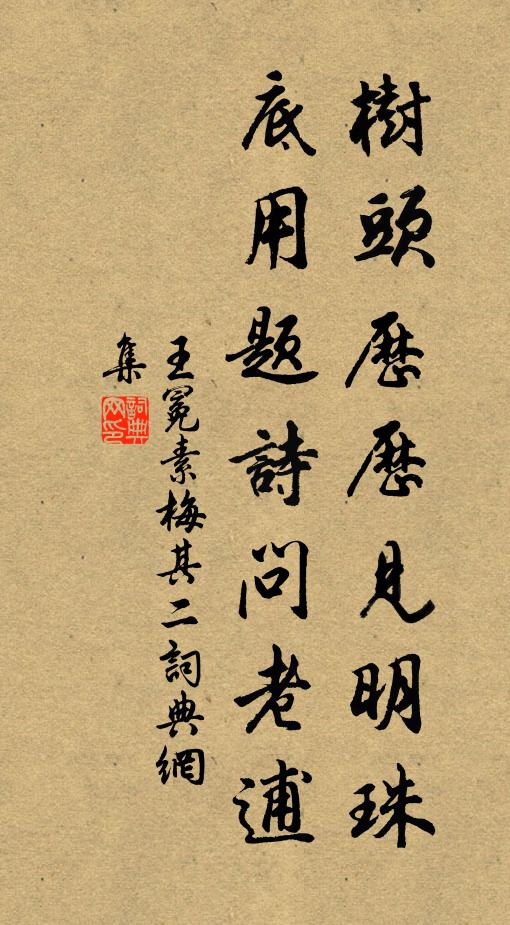 樹頭歷歷見明珠
底用題詩問老逋
王冕素梅其二詞典網
集
詞典网印